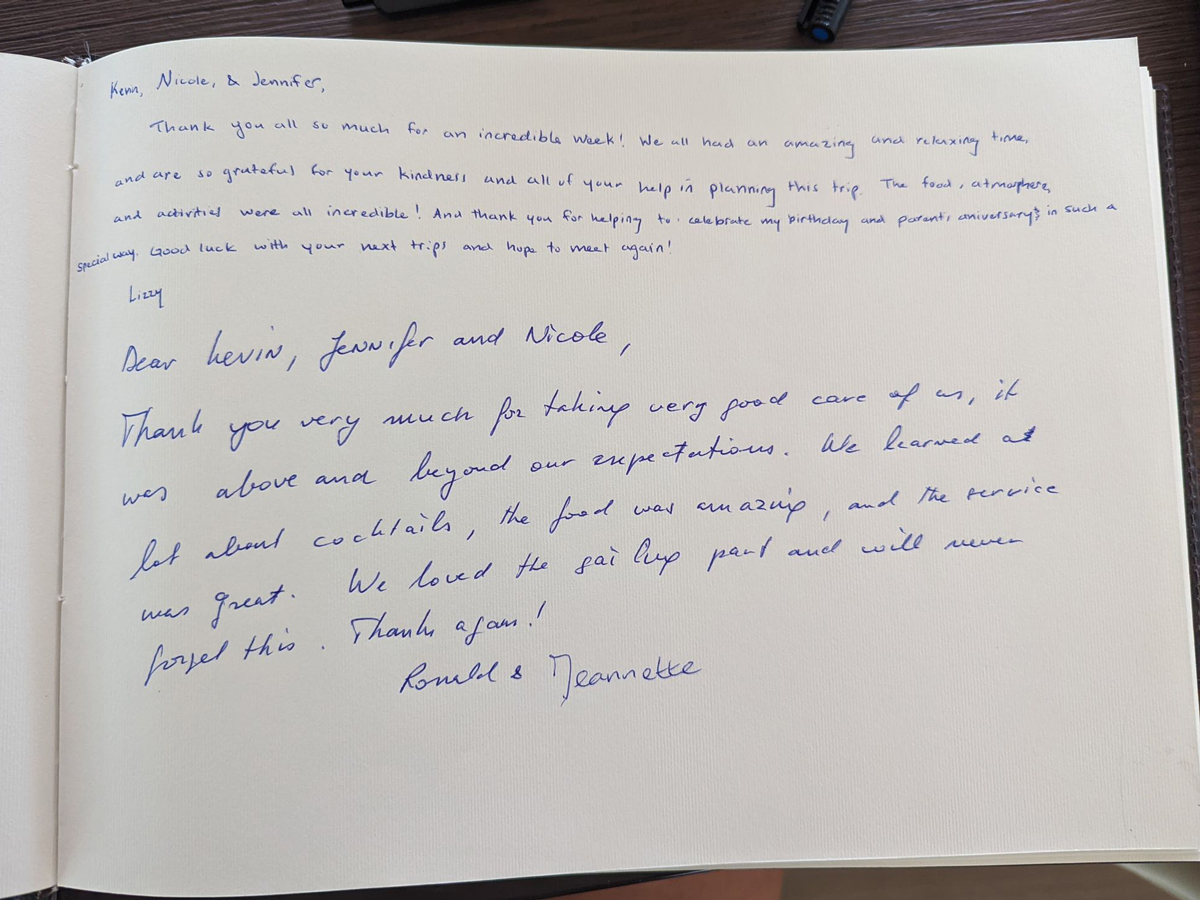 Kevin, Nicole, & Jennifer,
Thank you all so much for an incredible week! We all had an amazing and relaxing time,
and are so grateful for your kindness and all of your help in planning this trip. The food, atmosphere,
and activities were all incredible! And thank you for helping to celebrate my birthday and parents aniversary's in such a
special way. Good luck with your next trips and hope to meet again!
Lizzy
Dear Kevin, Jennifer and Nicole,
Thank you very much for taking very good care of us, it
was above and beyond our expectations. We learned a
lot about cocktails, the food was amazing, and the service
was great. We loved the sailing part and will never
forget this. Thanks again!
Ronald & Jeannette